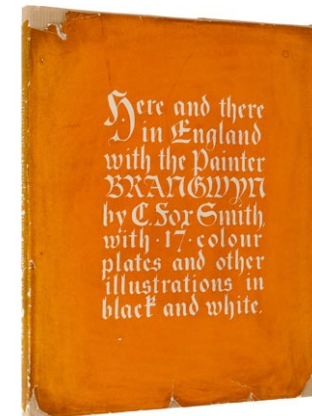 Here and there
in England
with the Painter
BRANGWYN
by C. Fox Smith,
with · 17 · colour
plates and other
illustrations in
black and white.